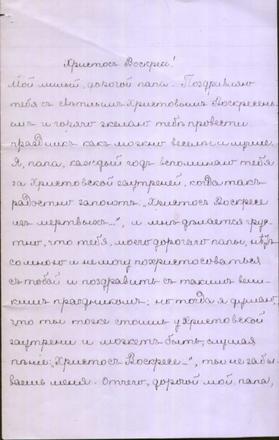 Христосъ Воскресе!
Мой милый, дорогой папа. Поздравляю
тебя съ свѣтлымъ Христовымъ Воскресень-
емъ и горячо желаю тебѣ провести
праздникъ какъ можно веселѣе и лучше.
Я, папа, каждый годъ вспоминаю тебя
за Христовской заутреней, когда такъ
радостно запоютъ „Христосъ Воскресе
изъ мертвыхъ...", и мнѣ дѣлается гру-
стно, что тебя, моего дорогого папы, нѣтъ
со мною и не могу похристосоваться
съ тобой и поздравить съ такимъ вели-
кимъ праздникомъ; но тогда я думаю,
что ты тоже стоишь у Христовской
заутрени и можетъ быть, слушая
пѣніе „Христосъ Воскресе...", ты не забы-
ваешь меня. Отчего, дорогой мой, папа,